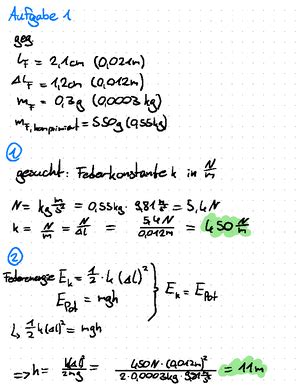 Aufgabe 1
geg
L_F = 2,1cm (0,021m)
ΔL_F = 1,2cm (0,012m)
m_F = 0,3g (0,0003kg)
m_F,komprimiert = 550g (0,55kg)
①
gesucht: Federkonstante k in N/m
N = kg m/s² = 0,55kg · 9,81 m/s² = 5,4N
k = N/m = N/ΔL = 5,4N/0,012m = 450 N/m
②
Federenergie E_k = 1/2 · k (ΔL)²
E_Pot = mgh } E_k = E_Pot
↳ 1/2 k(ΔL)² = mgh
=> h = k(Δl)²/2mg = 450N · (0,012m)²/2 · 0,0003kg · 9,81 m/s² = 11m